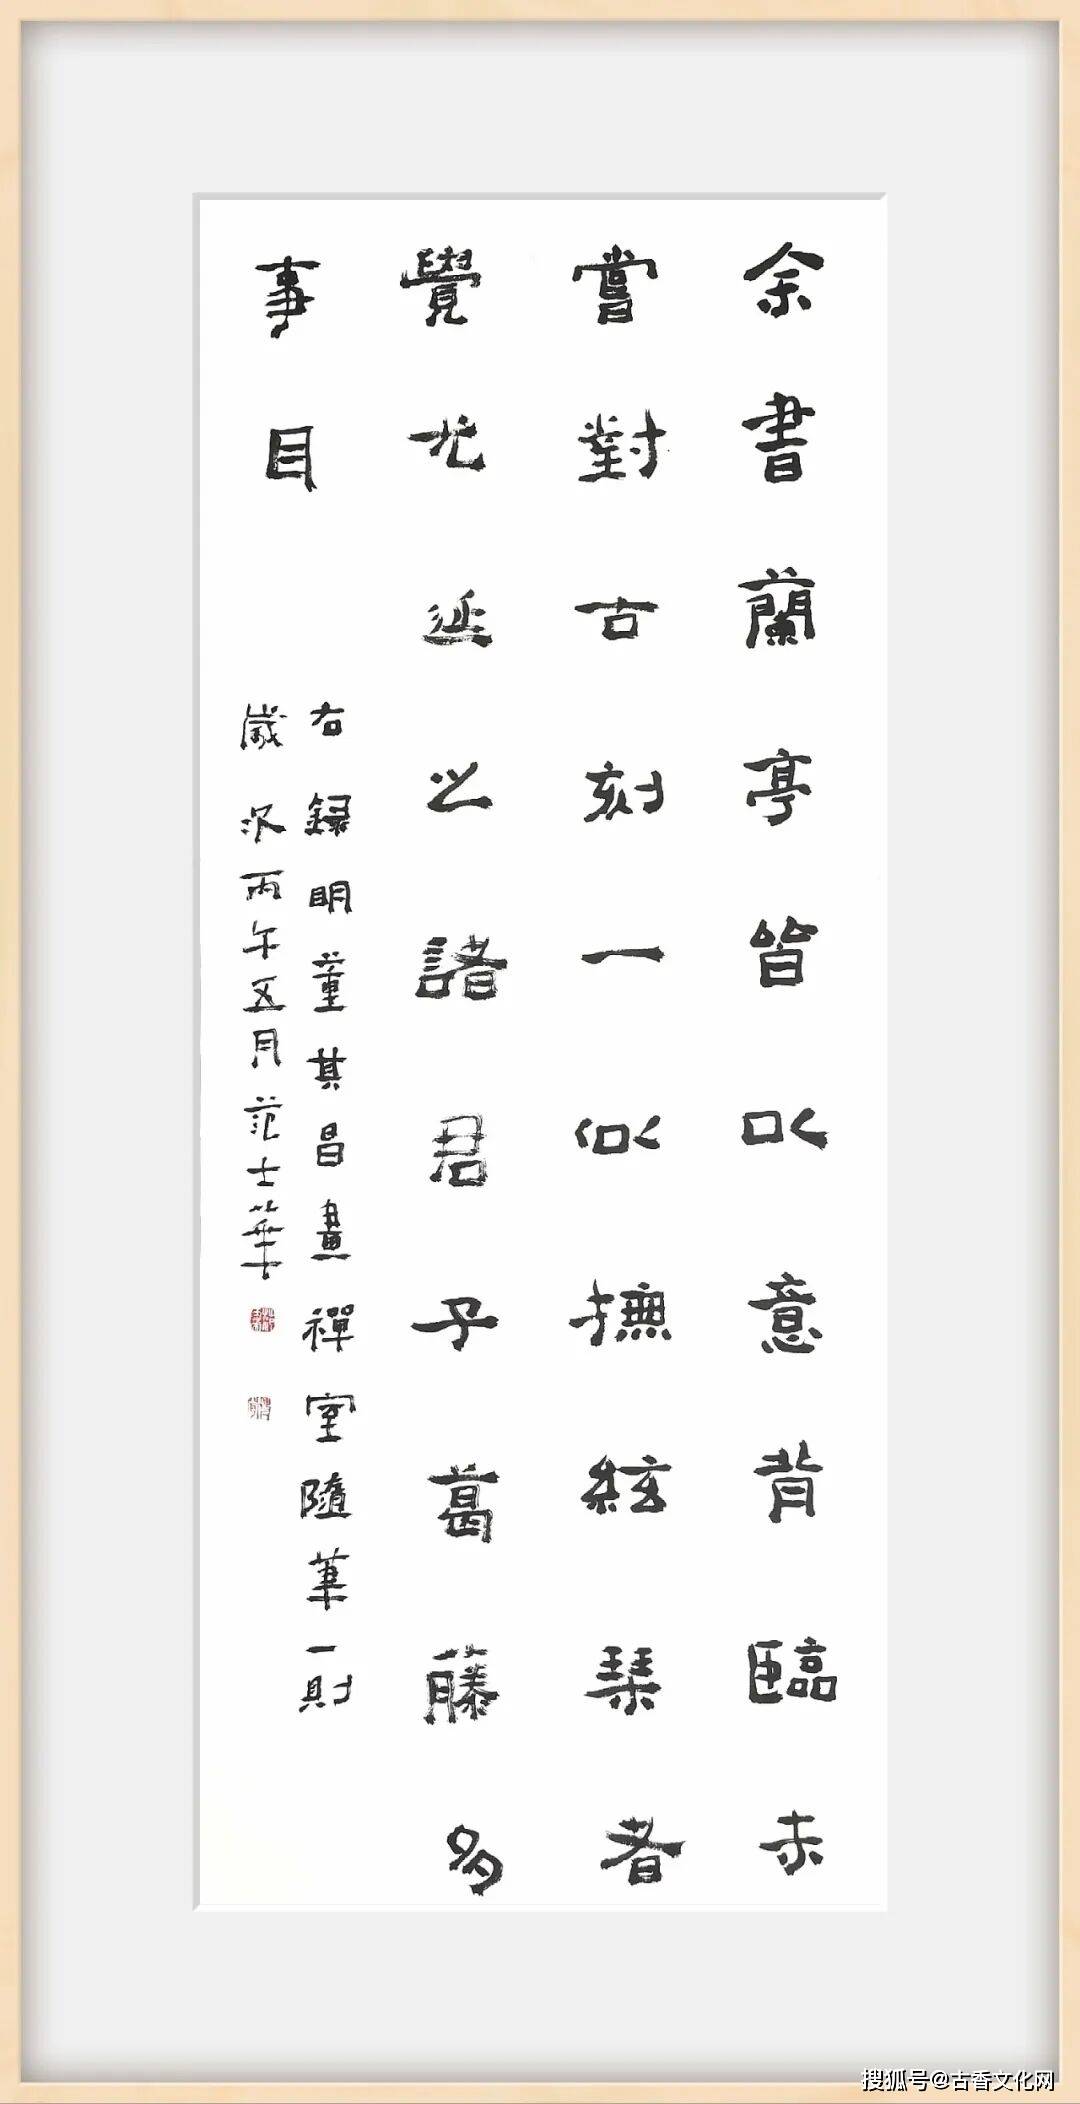 余書蘭亭皆以意背臨未
嘗對古刻一似撫絃琴者
覺尤延之諸君子葛藤多
事耳
右録明董其昌畫禪室隨筆一則
歲次丙午五月范士華
搜狐号@古香文化网